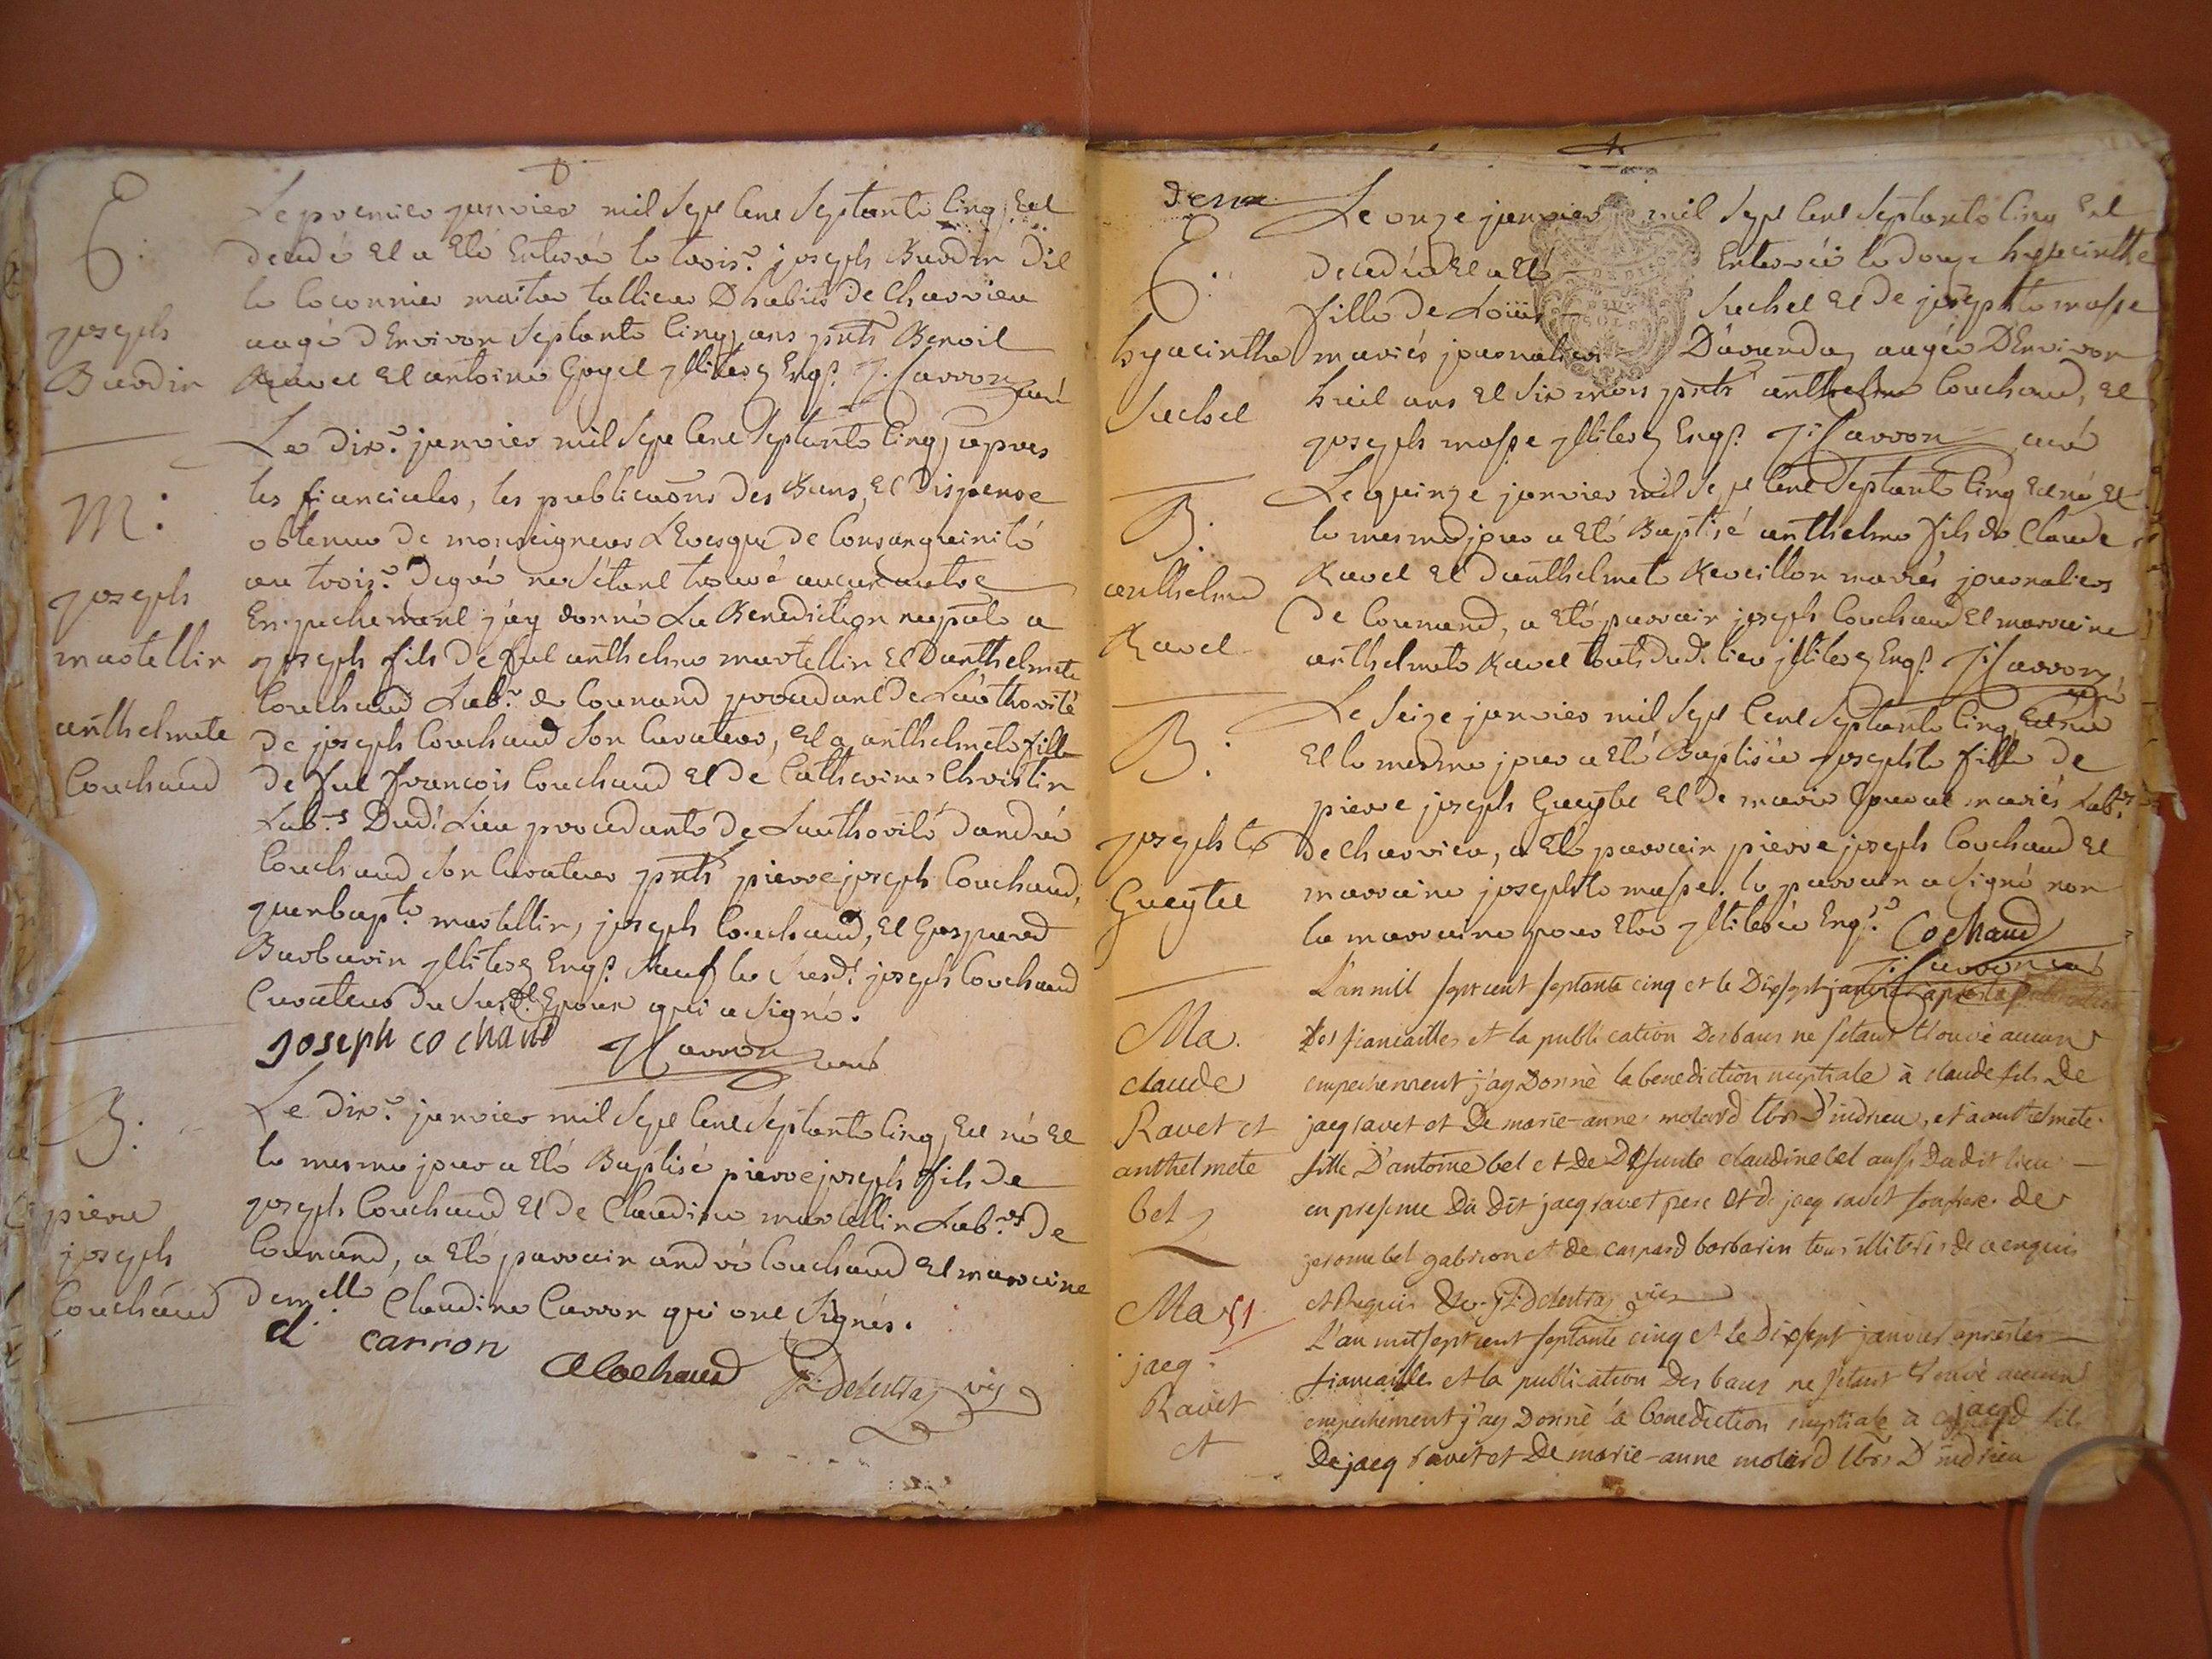 E.
joseph
Burdin
Le premier janvier mil Sept Cent Septante Cinq, Est
decedé Et a Eté Enterré le trois.e joseph Burdin dit
le Coconnier maitre tallieur D'habits de Charvieu
aagé d'Environ Septante Cinq ans pnts Benoit
Ravet Et antoine Goyet jlliterés Enqs. J. Carron curé
M.
joseph
martellin
anthelmete
Couchaud
Le dix.e janvier mil Sept Cent Septante Cinq, apres
les fianciales, les publicaons des Bans, Et Dispense
obtenue de monseigneur L'Evesque de Consanguinité
au trois.e degré ne S'étant trouvé aucun autre
Empechement j'ay donné La Benediction nuptale a
joseph fils de fut anthelme martellin Et D'anthelmete
Couchaud Lab.r de Conand procedant de L'authorité
de joseph Couchaud Son Curateur, Et a anthelmete fille
de fut francois Couchaud Et de Catherine Christin
Lab.rs Dud.t Lieu procedante de Lauthorité d'andré
Couchaud Son Curateur pnts pierre joseph Couchaud,
jeanbapt.e martellin, joseph Couchaud, Et Gaspard
Barbarin jlliterés Enqs. Sauf le Susd.t joseph Couchaud
Curateur du Susd.t Epoux qui a Signé.
joseph cochaud J Carron curé
B.
pierre
joseph
Couchaud
Le dix.e janvier mil Sept Cent Septante Cinq, Est né Et
le mesme jour a Eté Baptisé pierre joseph fils de
joseph Couchaud Et de Claudine martellin Lab.rs de
Conand, a Eté parrain andré Couchaud Et marraine
dem.elle Claudine Carron qui ont Signés.
d. carron
A Cochaud Delestra vic
E.
hyacinthe
Suchet
Le onze janvier mil Sept Cent Septante Cinq Est
decedée Et a Eté Enterrée le douze hyacinthe
fille de Loüis Suchet Et de josephte masse
mariés journaliers D'arandas aagée D'Environ
huit ans Et Six mois pnts anthelme Couchaud, Et
joseph masse jlliterés Enqs. J. Carron curé
B.
anthelme
Ravet
Le quinze janvier mil Sept Cent Septante Cinq Est né Et
le mesme jour a Eté Baptisé anthelme fils de Claude
Ravet Et d'anthelmete Reveillon mariés journaliers
de Conand, a Eté parrain joseph Couchaud Et marraine
anthelmete Ravet touts dud.t lieu jlliterés Enqs. J. Carron
curé
B.
josephte
Gueytet
Le Seize janvier mil Sept Cent Septante Cinq Est née
Et le mesme jour a Eté Baptisée josephte fille de
pierre joseph Gueytet Et de marie mariés Lab.rs
de Charvieu, a Eté parrain pierre joseph Couchaud Et
marraine josephte masse. le parrain a Signé non
la marraine pour Etre jlliterée Enqs. Cochaud
J. Carron curé
Ma.
claude
Ravet et
anthelmete
bel
L'an mil sept cent septante cinq et le Dixsept janvier après la publication
Des fiancailles et la publication Des bans ne s'etant trouvè aucun
empechement j'ay Donnè la benediction nuptiale à claude fils De
jacq ravet et De marie-anne molard lbrs D'indrieu, et à anthelmete
fille D'antoine bel et De Defunte claudine bel aussi Dudit lieu
en presence Du Dit jacq ravet pere et de jacq ravet son frere de
jerome bel gabrion et de caspard barbarin tous illiterés de ce enquis
et Requis Delestra vic
Ma 51
jacq
Ravet
et
L'an mil sept cent septante cinq et le Dixsept janvier après les
fiancailles et la publication Des bans ne s'etant trouvè aucun
empechement j'ay Donnè la benediction nuptiale à jacq fils
De jacq ravet et De marie-anne molard lbrs D'indrieu